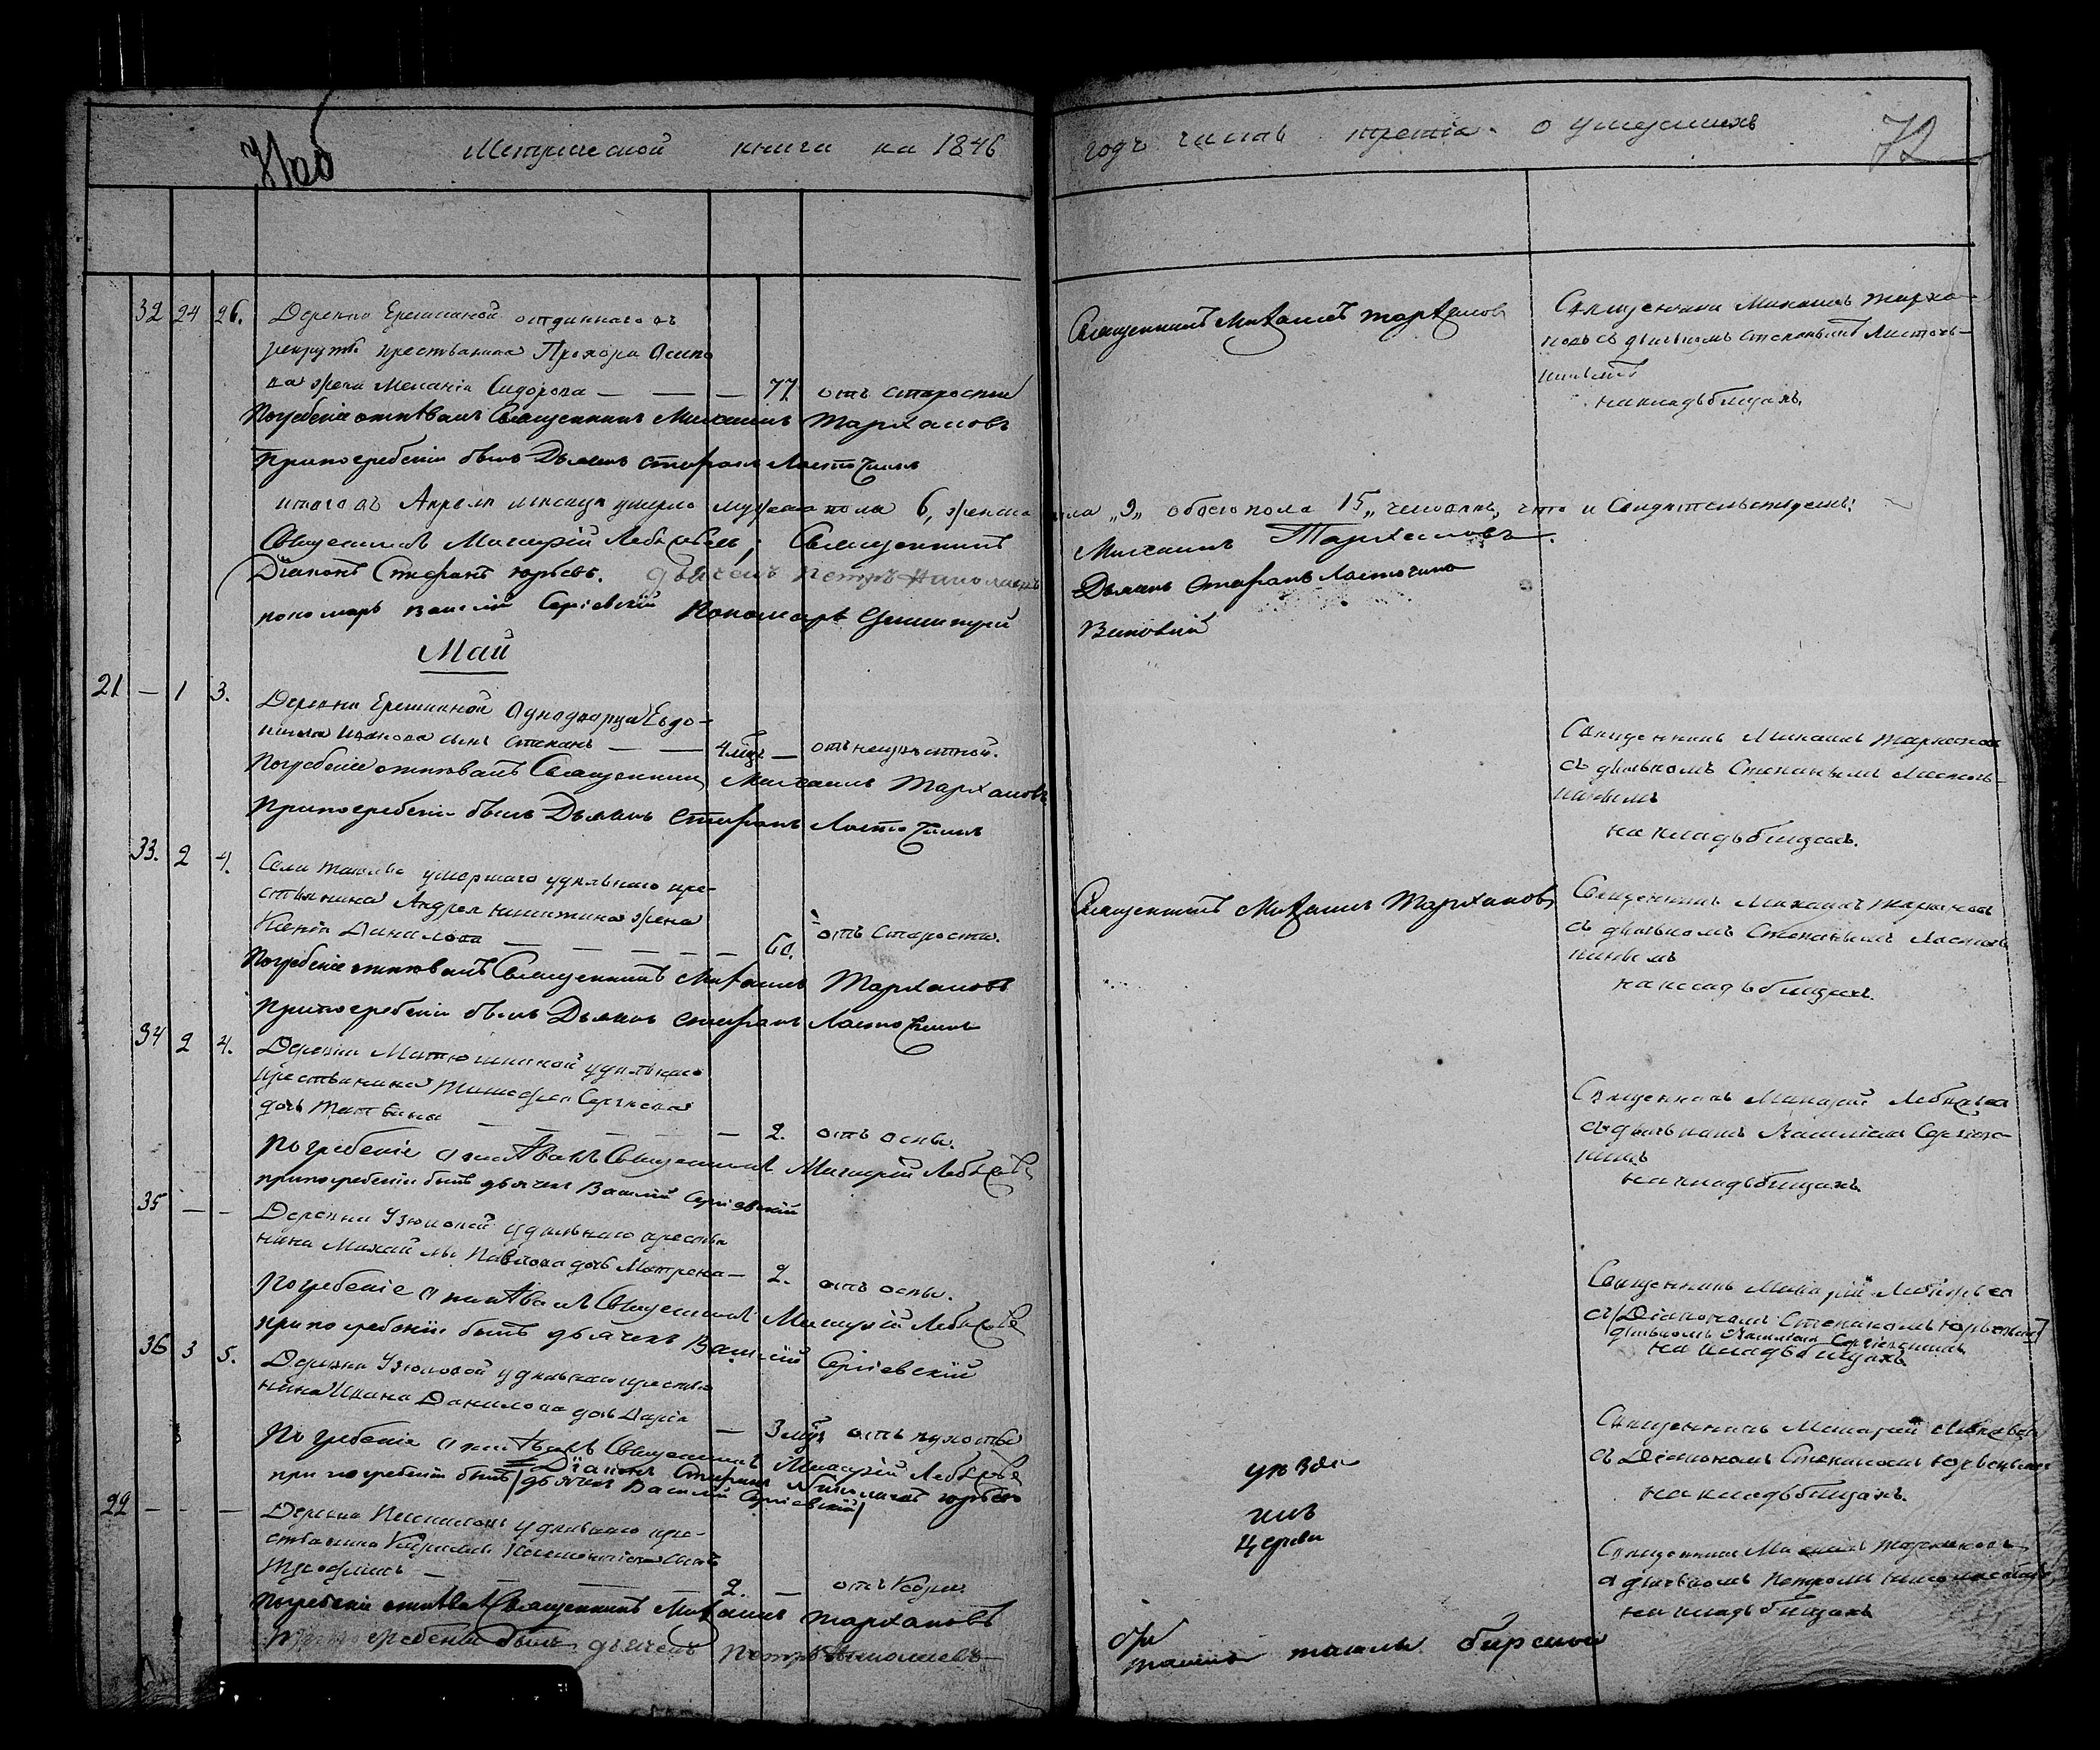 Метрической книги на 1846
годъ часть третiя о умершихъ
72
32 24 26. Деревни Ерешкиной отданнаго въ
рекруты крестьянина Прохора Осипо
ва жена Меланiя Сидорова — — — 77 отъ старости
Погребенiе отпѣвалъ Священникъ Михаилъ Тархановъ
При погребенiи былъ Дьячекъ Стефанъ Ласточкинъ
Священникъ Михаилъ Тархановъ
Священникъ Михаилъ Тархо-
новъ съ дьячкомъ Степаномъ Ласточ-
кинымъ
на кладбищахъ.
итого въ Апрелѣ месяцѣ умерло мужеска пола 6, женска пола „9„ обоего пола 15„ человекъ, что и свидѣтельствуемъ:
Священникъ Макарiй Лебедевъ; Священникъ Михаилъ Тархановъ.
Дiаконъ Стефанъ Юрьевъ. Дьячекъ Петръ Николаевъ Дьячекъ Стефанъ Ласточкинъ
пономарь Василiй Сергiевскiй Пономарь
Май
21 — 1 3. Деревни Ерешкиной Однодворца Евдо-
кима Иванова сынъ Степанъ — — 4 мѣс — отъ неизвѣстной.
Погребенiе отпѣвалъ Священникъ Михаилъ Тархановъ
При погребенiи былъ Дьячекъ Стефанъ Ласточкинъ
Священникъ Михаилъ Тархановъ
съ дьячкомъ Степаномъ Ласточ-
кинымъ
на кладбищахъ.
33. 2 4. Села умершаго удѣльнаго кре-
стьянина Андрея Никитина жена
Ксенiя Данилова — — — — — 60. отъ старости.
Погребенiе отпѣвалъ Священникъ Михаилъ Тархановъ
При погребенiи былъ Дьячекъ Стефанъ Ласточкинъ
Священникъ Михаилъ Тархановъ
Священникъ Михаилъ Тархановъ
съ дьячкомъ Степаномъ Ласточ
кинымъ
на кладбищахъ.
34 2 4. Деревни Матюшиной удѣльнаго
крестьянина Тимофея Сергѣева
дочь Татьяна — — — — — 2. отъ оспы.
Погребенiе отпѣвалъ Священникъ Макарiй Лебедевъ
при погребенiи былъ дьячекъ Василiй Сергiевскiй
Священникъ Макарiй Лебедевъ
съ дьячкомъ Василiемъ Сергiевс-
кимъ
на кладбищахъ.
35 — — Деревни Узюковой удѣльнаго крестья
нина Михайлы Павлова дочь Матрена — 2. отъ оспы.
Погребенiе отпѣвалъ Священникъ Макарiй Лебедевъ
при погребенiи былъ дьячекъ Василiй Сергiевскiй
Священникъ Макарiй Лебедевъ
съ Дiакономъ Степаномъ Юрьевымъ
дьячкомъ Василiемъ Сергiевскимъ
на кладбищахъ
36 3 5. Деревни Узюковой удѣльнаго крестья
нина Ивана Данилова дочь Дарiя — 3 мѣс отъ
Погребенiе отпѣвалъ Священникъ Макарiй Лебедевъ
Дiаконъ Стефанъ Николаевъ Юрьевъ
при погребенiи былъ дьячекъ Василiй Сергiевскiй
Священникъ Макарiй Лебедевъ
съ Дiакономъ Степаномъ Юрьевымъ
на кладбищахъ.
22 — — Деревни удѣльнаго кре-
стьянина сынъ
— — — 2. — отъ Кори
Погребенiе отпѣвалъ Священникъ Михаилъ Тархановъ
при погребенiи былъ дьячекъ Петръ Николаевъ
Священникъ Михаилъ Тархановъ
съ дьячкомъ Петромъ Николаевымъ
на кладбищахъ
уѣзда
Церкви